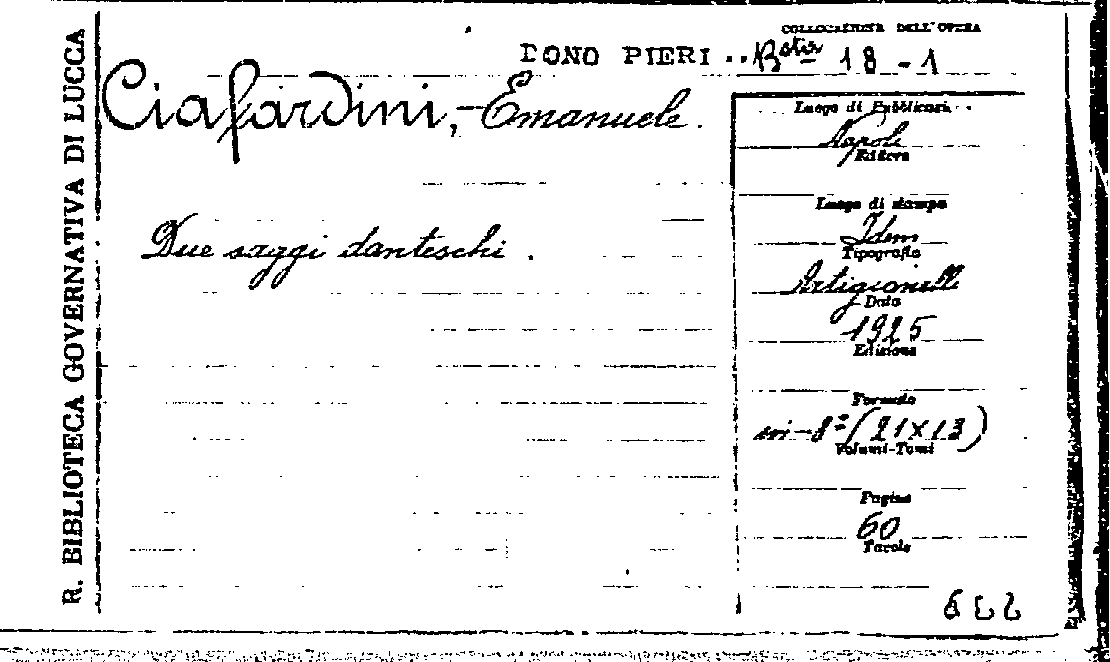 R. BIBLIOTECA GOVERNATIVA DI LUCCA
COLLOCAZIONE DELL'OPERA
DONO PIERI .. B.sta 18 - 1
Ciafardini, - Emanuele.
Due saggi danteschi.
Luogo di Pubblicaz.
Napoli
Editore
Luogo di stampa
Idem
Tipografia
Artigianelli
Data
1925
Edizione
Formato
in-8º (21×13)
Volumi-Tomi
Pagine
60
Tavole